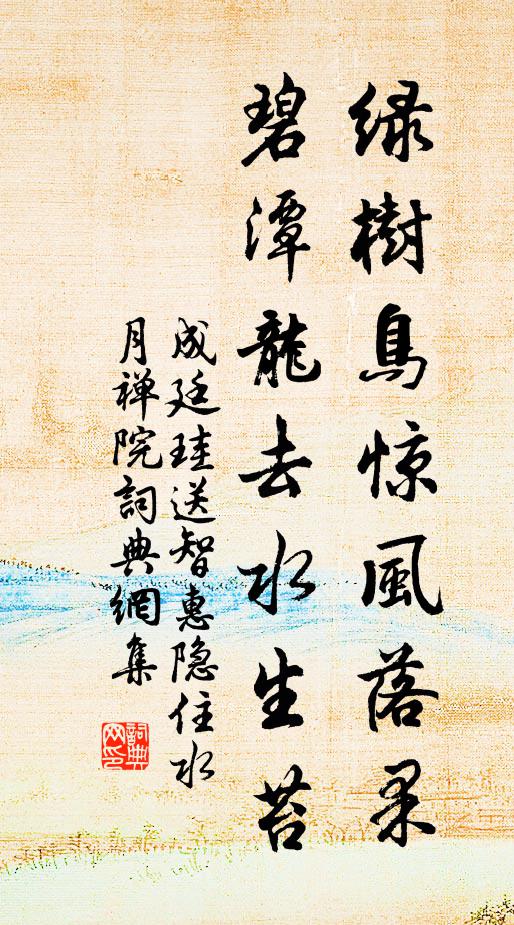 绿樹鳥惊風落果
碧潭龍去水生苔
成廷珪送智惠隐住水
月禅院詞典網集
詞典网印